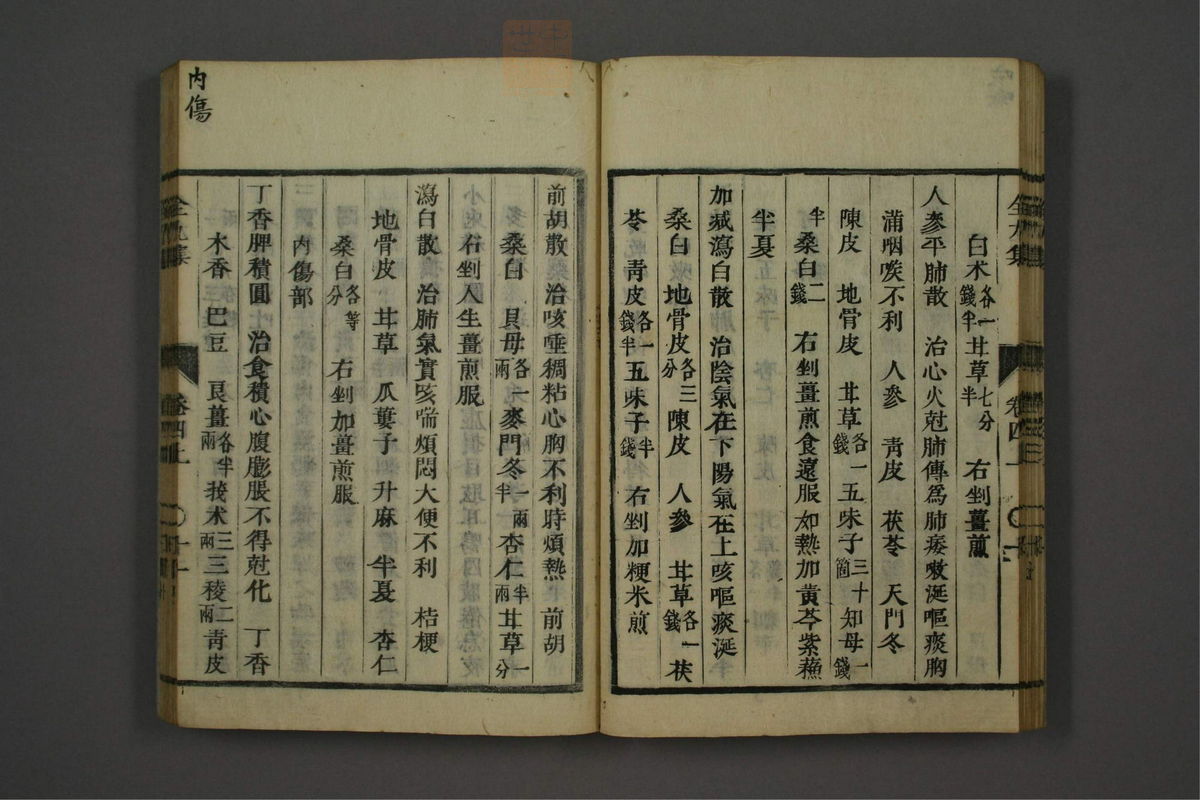 白朮各一錢半 甘草七分半 右剉薑煎
人參平肺散 治心火尅肺傳爲肺痿嗽涎嘔痰胸
滿咽喉不利 人參 青皮 茯苓 天門冬
陳皮 地骨皮 甘草各一錢 五味子三十箇 知母一錢
半 桑白二錢 右剉薑煎食遠服 如熱加黃芩紫蘓
半夏
加减瀉白散 治陰氣在下陽氣在上咳嘔痰涎
桑白 地骨皮各三分 陳皮 人參 甘草各一錢 茯
苓 靑皮各一錢半 五味子半錢 右剉加粳米煎
前胡散 治咳唾稠粘心胸不利時煩熱 前胡
桑白 貝母各一兩 麥門冬一兩半 杏仁半兩 甘草一分
右剉入生薑煎服
瀉白散 治肺氣實咳喘煩悶大便不利 桔梗
地骨皮 甘草 瓜蔞子 升麻 半夏 杏仁
桑白各等分 右剉加薑煎服
內傷部
丁香脾積圓 治食積心腹膨脹不得尅化 丁香
木香 巴豆 良薑各半兩 莪朮三兩 三稜二兩 靑皮
內傷
卷四上